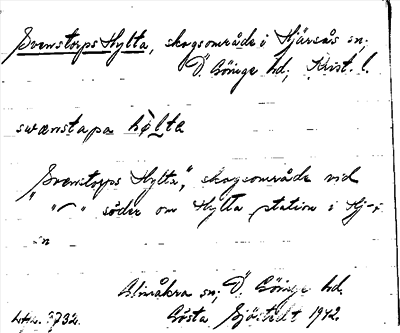 Svenstorps Hylta, skogsområde i Hjärsås sn;
Ö. Göinge hd; Krist. l.
swænstapa hỳlta
"Svenstorps Hylta", skogsområde vid
söder om Hylta station i Hj-s
sn
Glimåkra sn; Ö. Göinge hd.
Gösta Sjöstedt 1942.